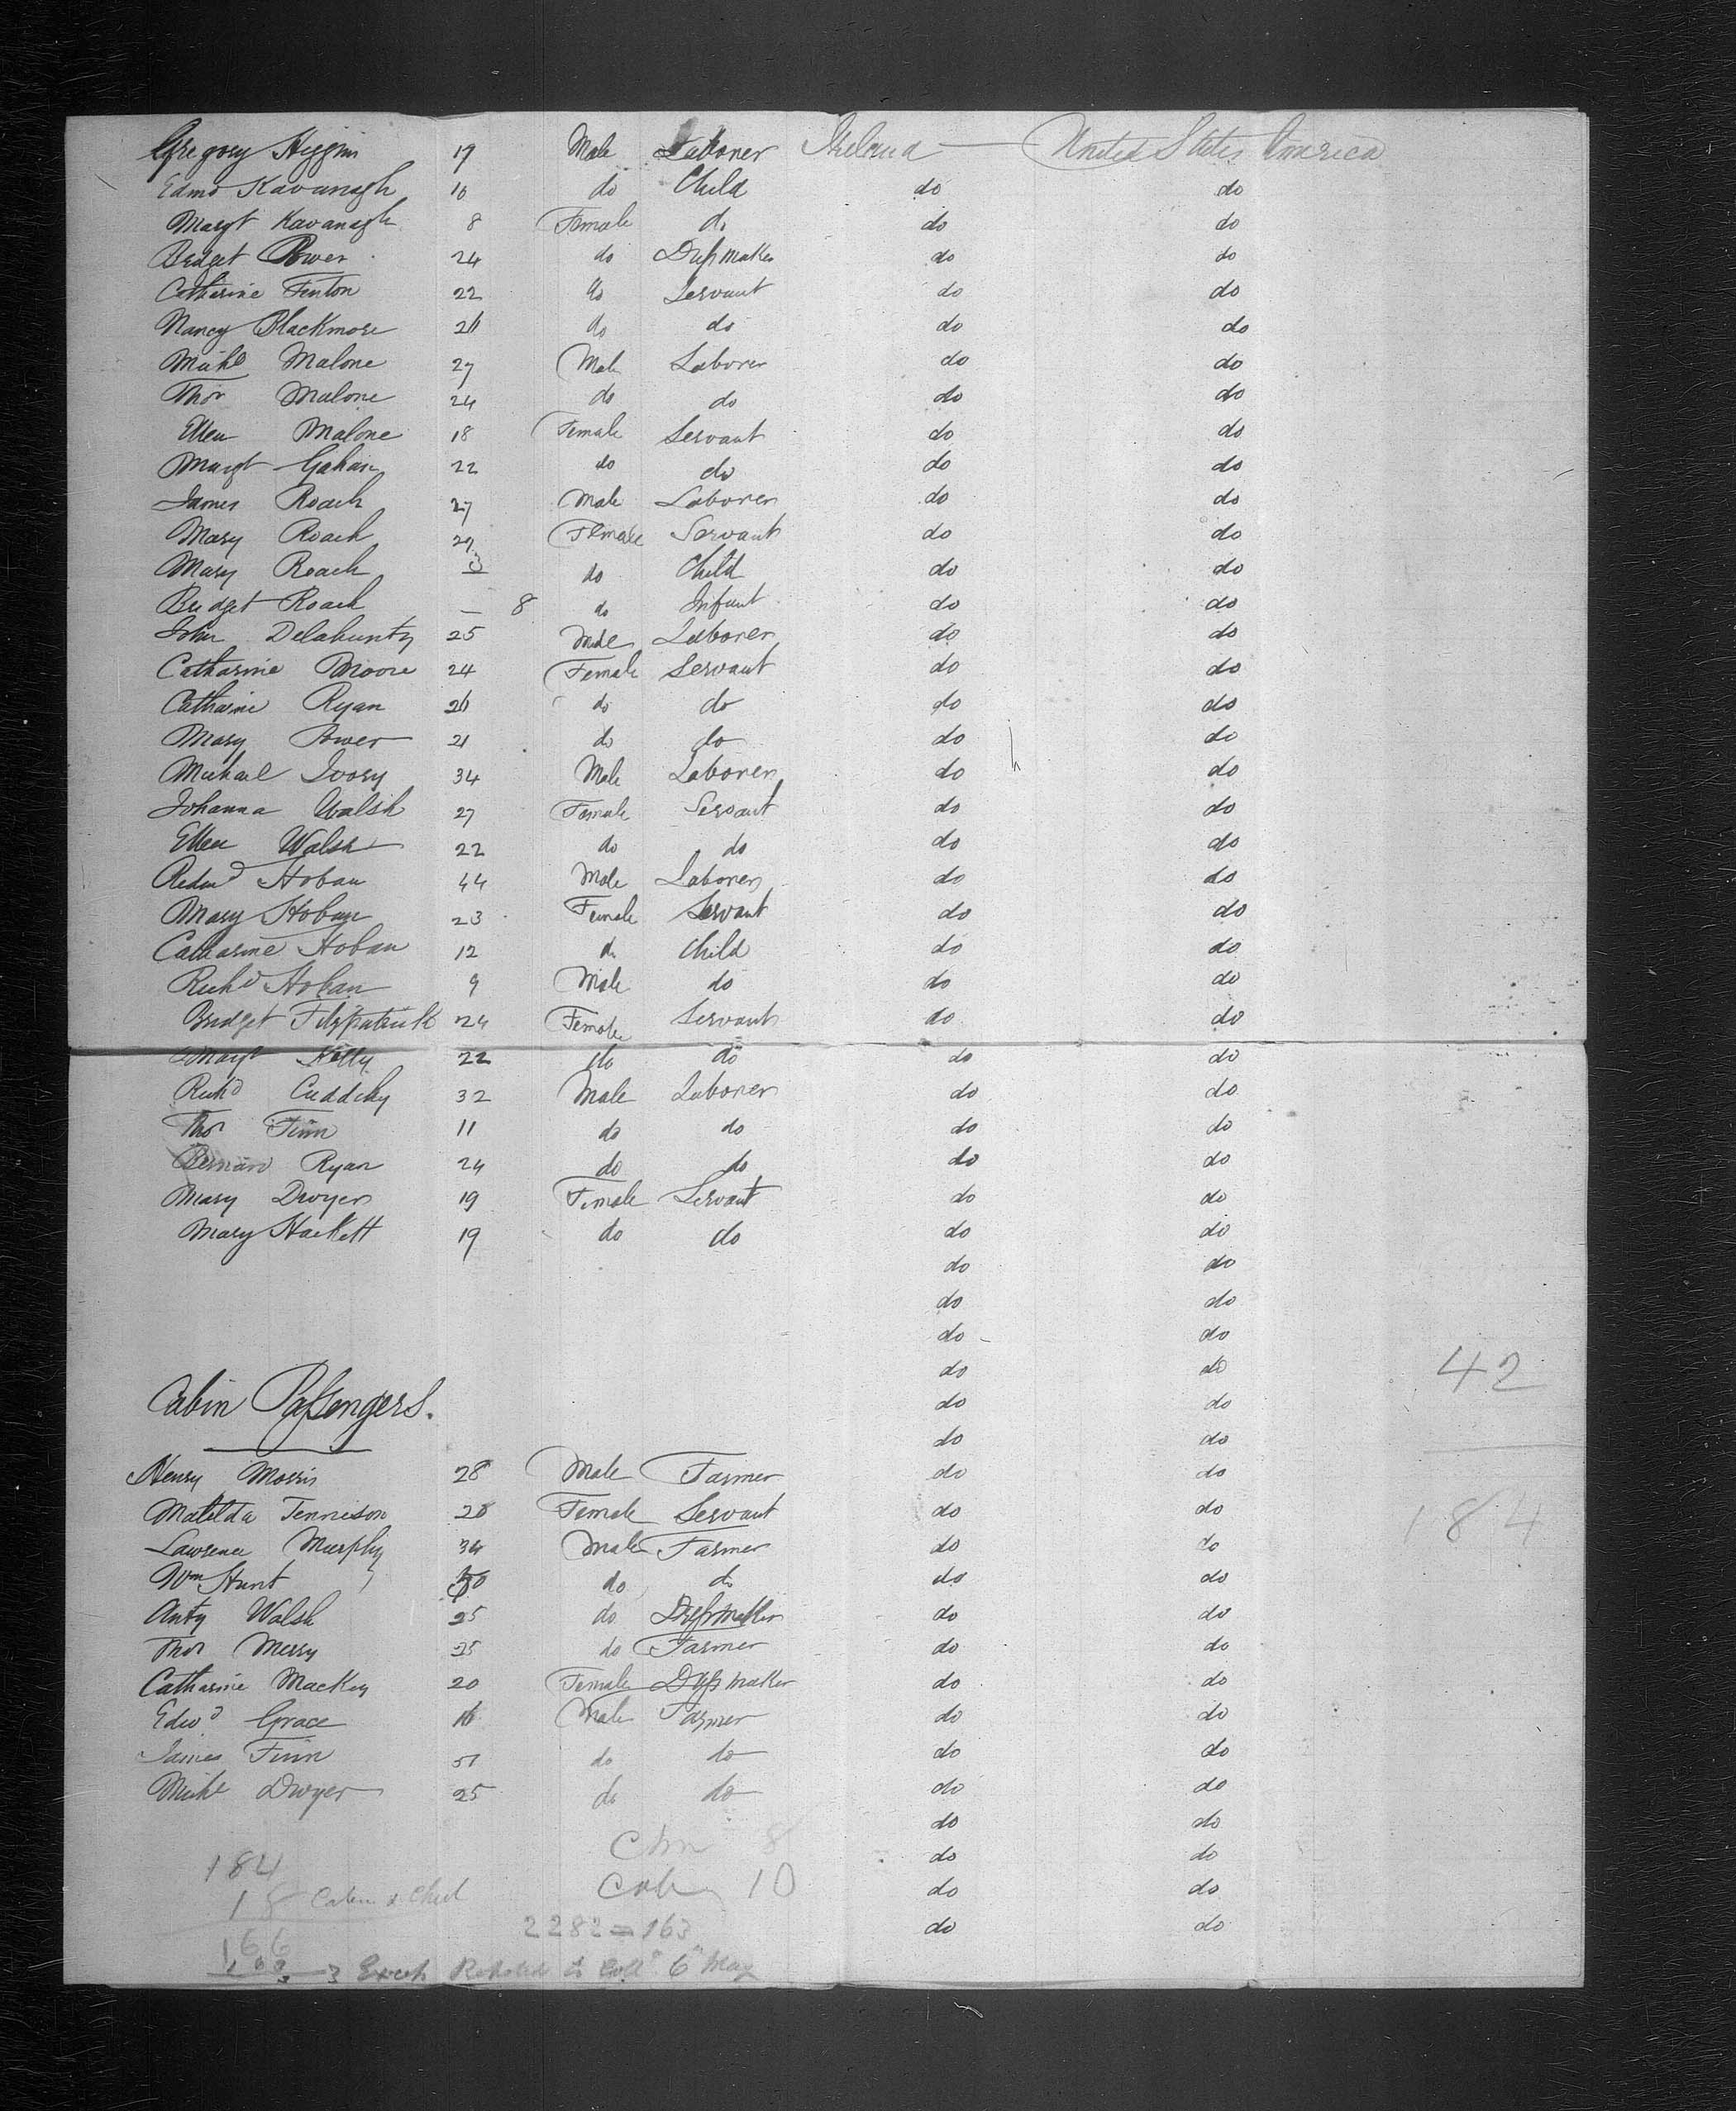 Gregory Higgins 19 Male Laborer Ireland United States America
Edmd Kavanagh 10 do Child do do
Margt Kavanagh 8 Female do do do
Bridget Power 24 do Dressmaker do do
Catherine Fenton 22 do Servant do do
Nancy Blackmore 26 do do do do
Michl Malone 27 Male Laborer do do
Thos Malone 24 do do do do
Ellen Malone 18 Female Servant do do
Margt Gahan 22 do do do do
James Roach 27 Male Laborer do do
Mary Roach 29 Female Servant do do
Mary Roach 3 do Child do do
Bridget Roach — 8 do Infant do do
John Delahunty 25 Male Laborer do do
Catharine Moore 24 Female Servant do do
Catharine Ryan 26 do do do do
Mary Power 21 do do do do
Michael Ivory 34 Male Laborer do do
Johanna Walsh 27 Female Servant do do
Ellen Walsh 22 do do do do
Redmd Hoban 44 Male Laborer do do
Mary Hoban 23 Female Servant do do
Catharine Hoban 12 do Child do do
Richd Hoban 9 Male do do do
Bridget Fitzpatrick 24 Female Servant do do
Margt Kelly 22 do do do do
Richd Cuddehy 32 Male Laborer do do
Thos Finn 11 do do do do
Bernard Ryan 24 do do do do
Mary Dwyer 19 Female Servant do do
Mary Hackett 19 do do do do
do do
do do
do do
do do 42
Cabin Passengers. do do
do do
Henry Morris 28 Male Farmer do do
Matilda Tennison 20 Female Servant do do 184
Lawrence Murphy 34 Male Farmer do do
Wm Hunt do do do do
Anty Walsh 25 do Dressmaker do do
Thos Merry 25 do Farmer do do
Catharine Mackey 20 Female Dressmaker do do
Edwd Grace 16 Male Farmer do do
James Finn 51 do do do do
Michl Dwyer 25 do do do do
do do
Chn 8
184 do do
Cab 10
18 Cabin & Chil do do
2282 = 163 do do
166
163
3 Excess Reported to Coll 6th May